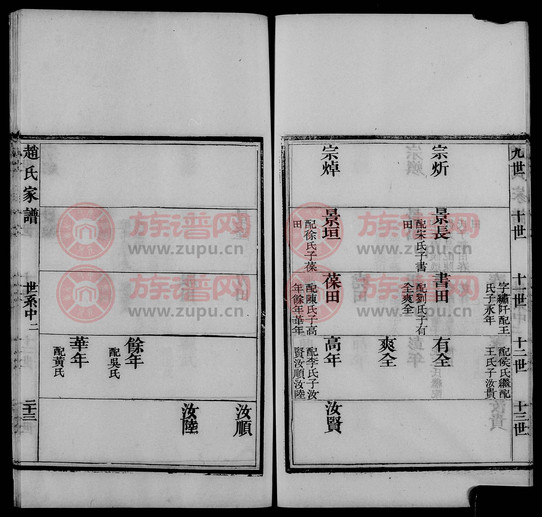 九世
十世
十一世
十二世
十三世
字繡阡配王氏子永年
配侯氏繼配王氏子汝貴
宗炘
景長
配宋氏子書田
書田
配劉氏子有全爽全
有全
爽全
宗焯
景垣
配徐氏子葆田
葆田
配陳氏子高年餘年華年
高年
配李氏子汝賢汝順汝陸
汝賢
汝順
汝陸
餘年
配吳氏
華年
配黃氏
趙氏家譜
世系中二
二十三
族谱网
www.zupu.cn
族谱网
www.zupu.cn
族谱网
www.zupu.cn
族谱网
www.zupu.cn